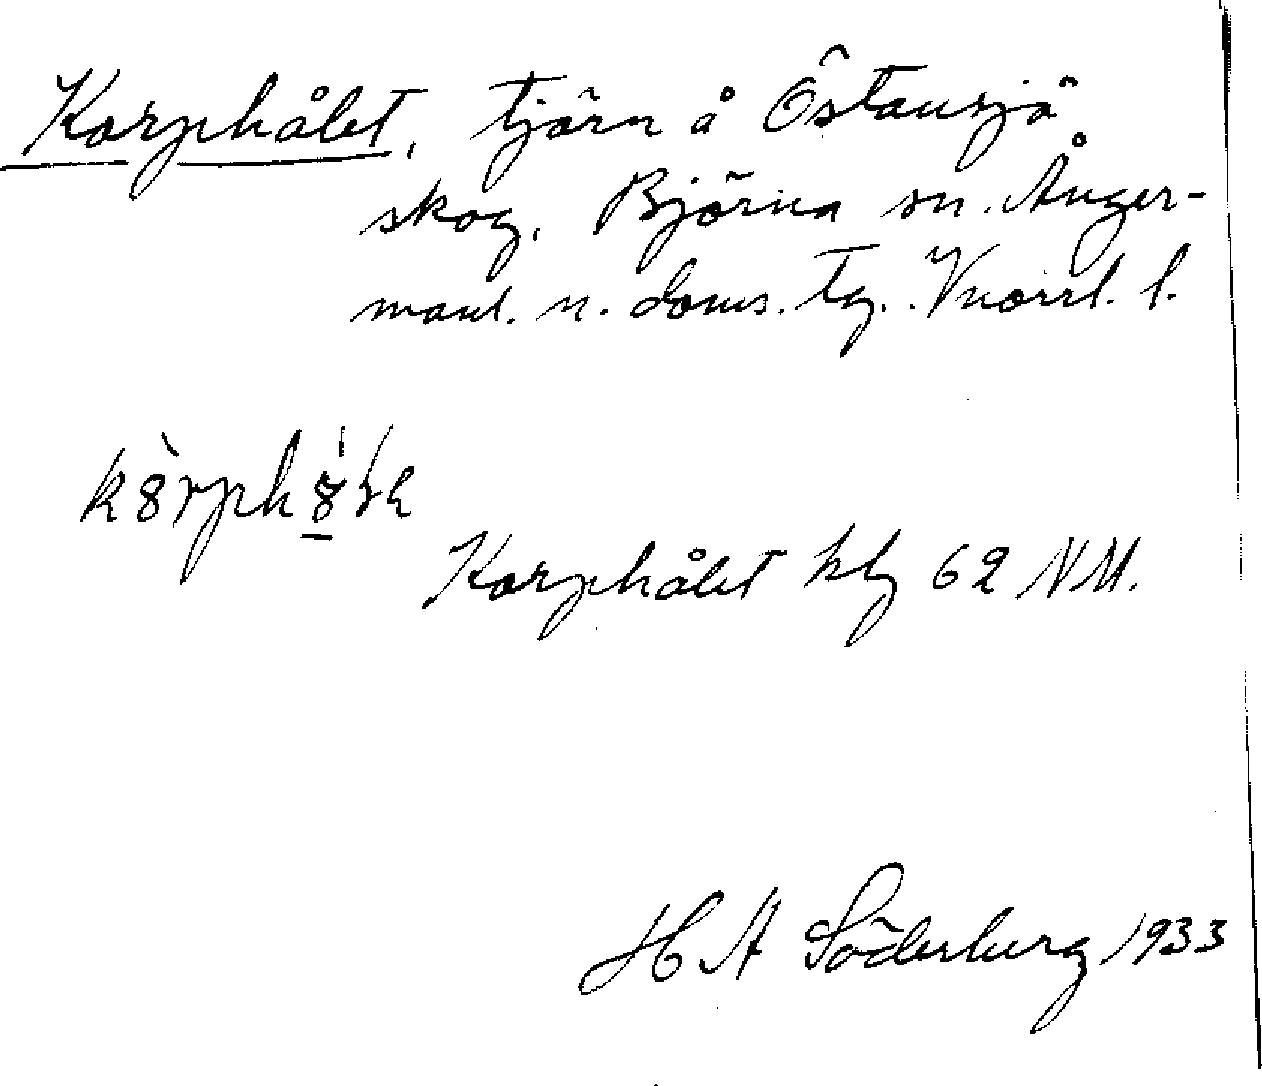 Korphålet, tjärn å Östansjö
skog, Björna sn. Ånger-
manl. n. doms. tg. Vnorrl. l.
Korphålet kbl 62 NM.
H A Söderberg 1933